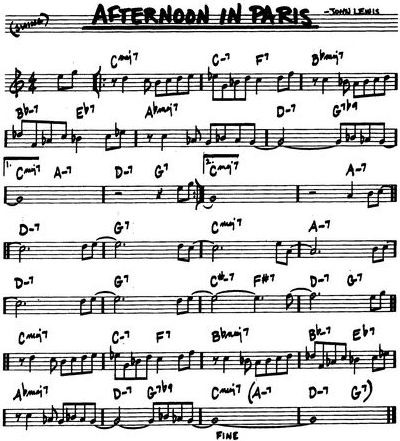 (SWING) AFTERNOON IN PARIS -JOHN LEWIS
Cmaj7 C-7 F7 Bbmaj7
Bb-7 Eb7 Abmaj7 D-7 G7b9
1. Cmaj7 A-7 D-7 G7 2. Cmaj7 A-7
D-7 G7 Cmaj7 A-7
D-7 G7 C#-7 F#7 D-7 G7
Cmaj7 C-7 F7 Bbmaj7 Bb-7 Eb7
Abmaj7 D-7 G7b9 Cmaj7 (A-7 D-7 G7)
FINE